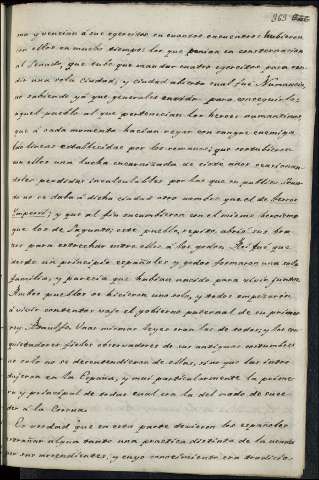 363
mo y vencian á sus egercitos en cuantos encuentros hubieron
con ellos en mucho tiempo: los que ponian en consternacion
al Senado, que tubo que mandar cuatro egercitos para ren-
dir una sola ciudad, y ciudad abierta cual fué Numancia,
no sabiendo yá que generales enviar para conseguirlo:
aquel pueblo al que pertenecian los heroes numantinos,
que á cada momento hacian regar con sangre enemiga
las lineas establecidas por los romanos; que sostubieron
con ellos una lucha encarnizada de siete años ocasionan-
doles perdidas incalculables por las que en publico Sena-
do no se daba á dicha ciudad otro nombre que el de terror
Imperii; y que al fin sucumbieron con el mismo heroismo
que los de Sagunto; este pueblo, repito, abrió sus bra-
zos para estrechar entre ellos á los godos. Asi fué que
desde un principio españoles y godos formaron una sola
familia, y parecia que habian nacido para vivir juntos.
Ambos pueblos se hicieron uno solo, y todos empezaron
á vivir contentos bajo el gobierno paternal de su primer
rey, Ataulfo. Unas mismas leyes eran las de todos; y los con-
quistadores fieles observadores de sus antiguas costumbres
no solo no se desentendieron de ellas, sino que las intro-
dujeron en la España, y mui particularmente la prime-
ra y principal de todas cual era la del modo de suce-
der á la Corona.
Es verdad que en esta parte debieron los españoles
estrañar algun tanto una practica distinta de la usada
por sus ascendientes, y cuyo conocimiento era tradicio-